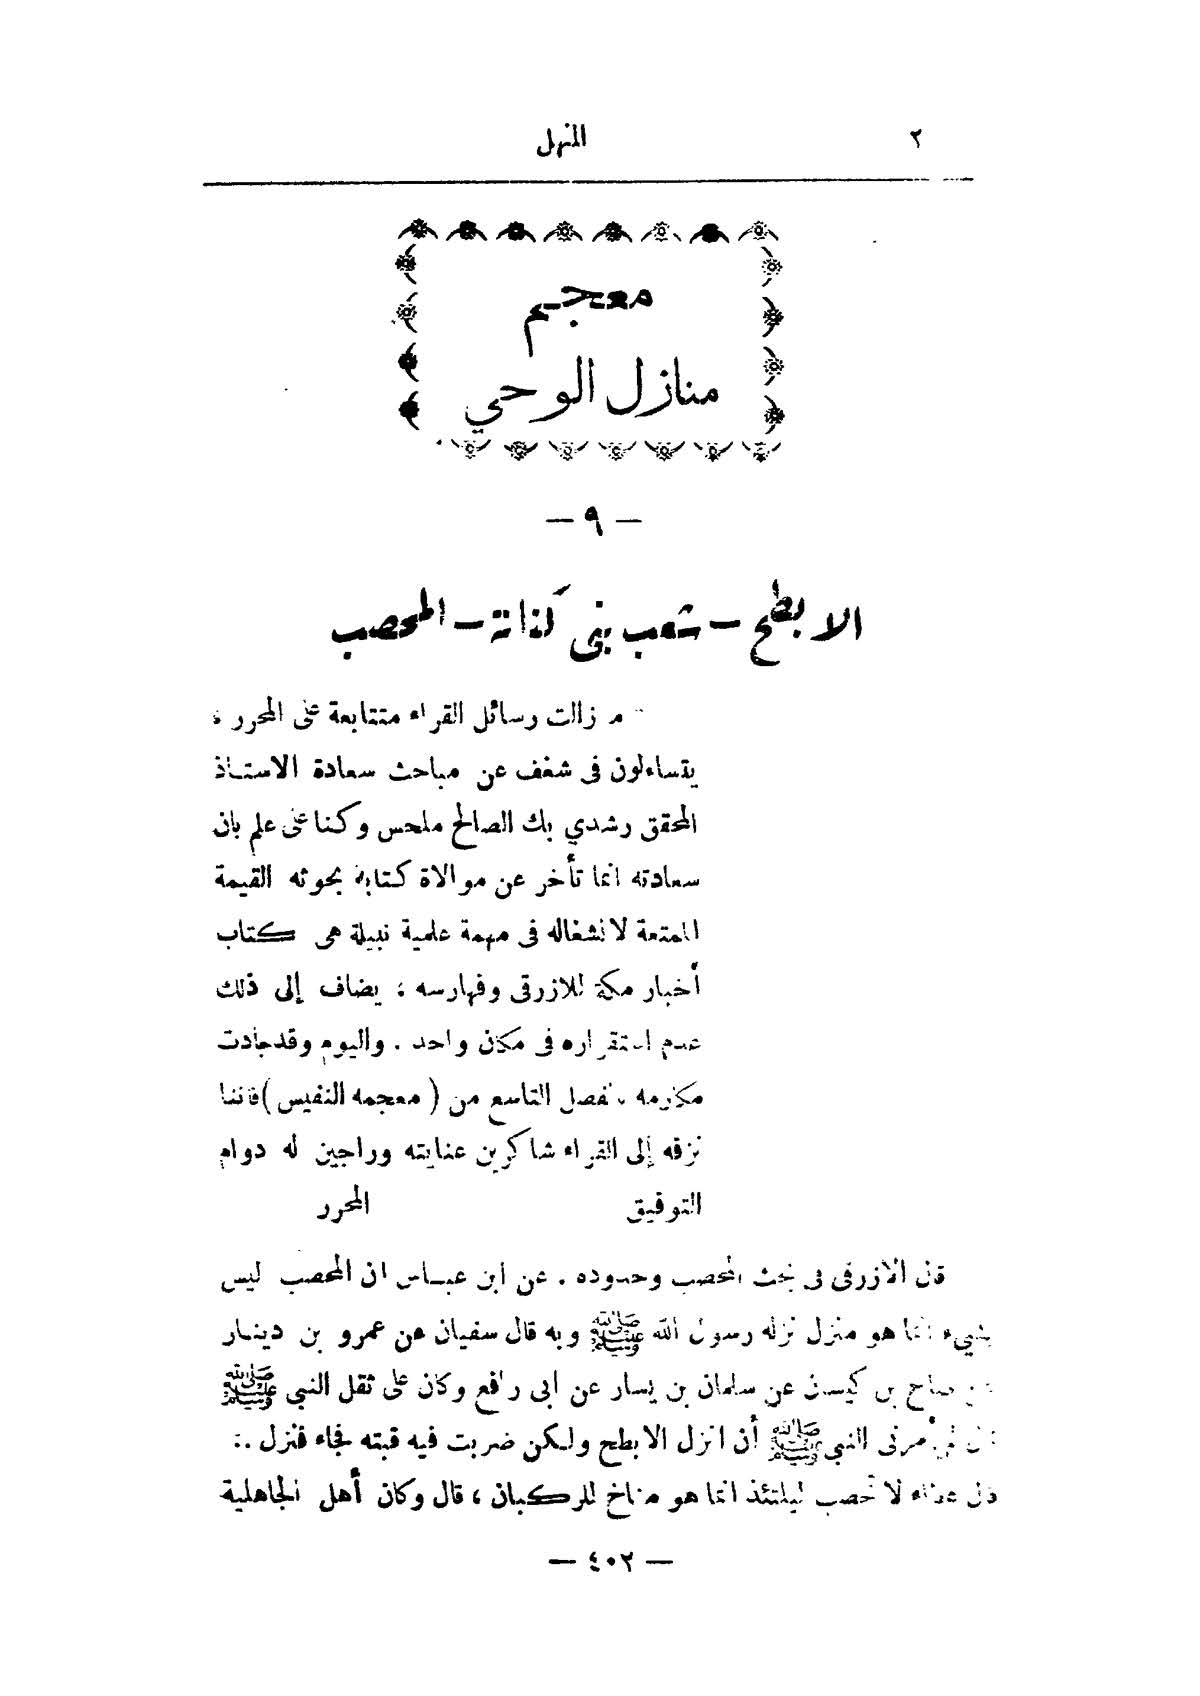 ٢ المنهل
معجم
منازل الوحي
— ٩ —
الابطح — شعب بني كنانة — المحصب
زالت رسائل القراء متتابعة على المحرر ،
يتساءلون فى شغف عن مباحث سعادة الاستاذ
المحقق رشدي بك الصالح ملحس وكنا على علم بان
سعادته انما تأخر عن موالاة كتابة بحوثه القيمة
الممتعة لانشغاله فى مهمة علمية نبيلة هى كتاب
أخبار مكة للازرقى وفهارسه ؛ يضاف إلى ذلك
عدم استقراره فى مكان واحد . واليوم وقد جادت
مكارمه بالفصل التاسع من ( معجمه النفيس ) فاننا
نزفه إلى القراء شاكرين عنايته وراجين له دوام
التوفيق المحرر
قال الازرقى فى بحث المحصب وحدوده . عن ابن عباس ان المحصب ليس
بشيء انما هو منزل نزله رسول الله ﷺ وبه قال سفيان عن عمرو بن دينار
عن صالح بن كيسان عن سلمان بن يسار عن ابى رافع وكان على ثقل النبى ﷺ
أمرنى النبى ﷺ أن انزل الابطح ولكن ضربت فيه قبته فجاء فنزل .:
قال عطاء لا تحصب ليلتئذ انما هو مناخ للركبان ، قال وكان أهل الجاهلية
— ٤٠٢ —